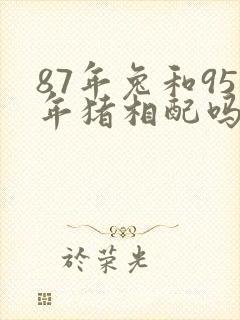 87年兔和95
年猪相配吗
於荣光